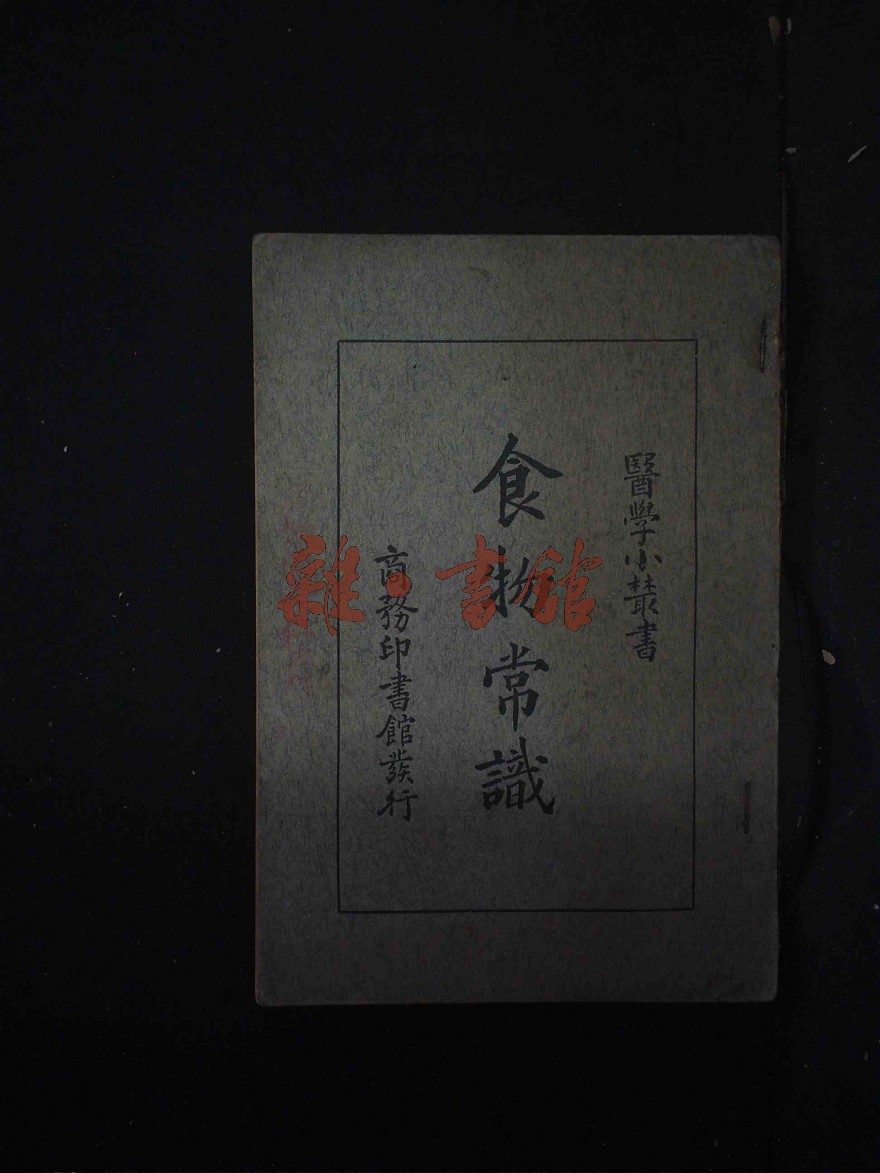 醫學小叢書
食物常識
商務印書館發行
雜·書館